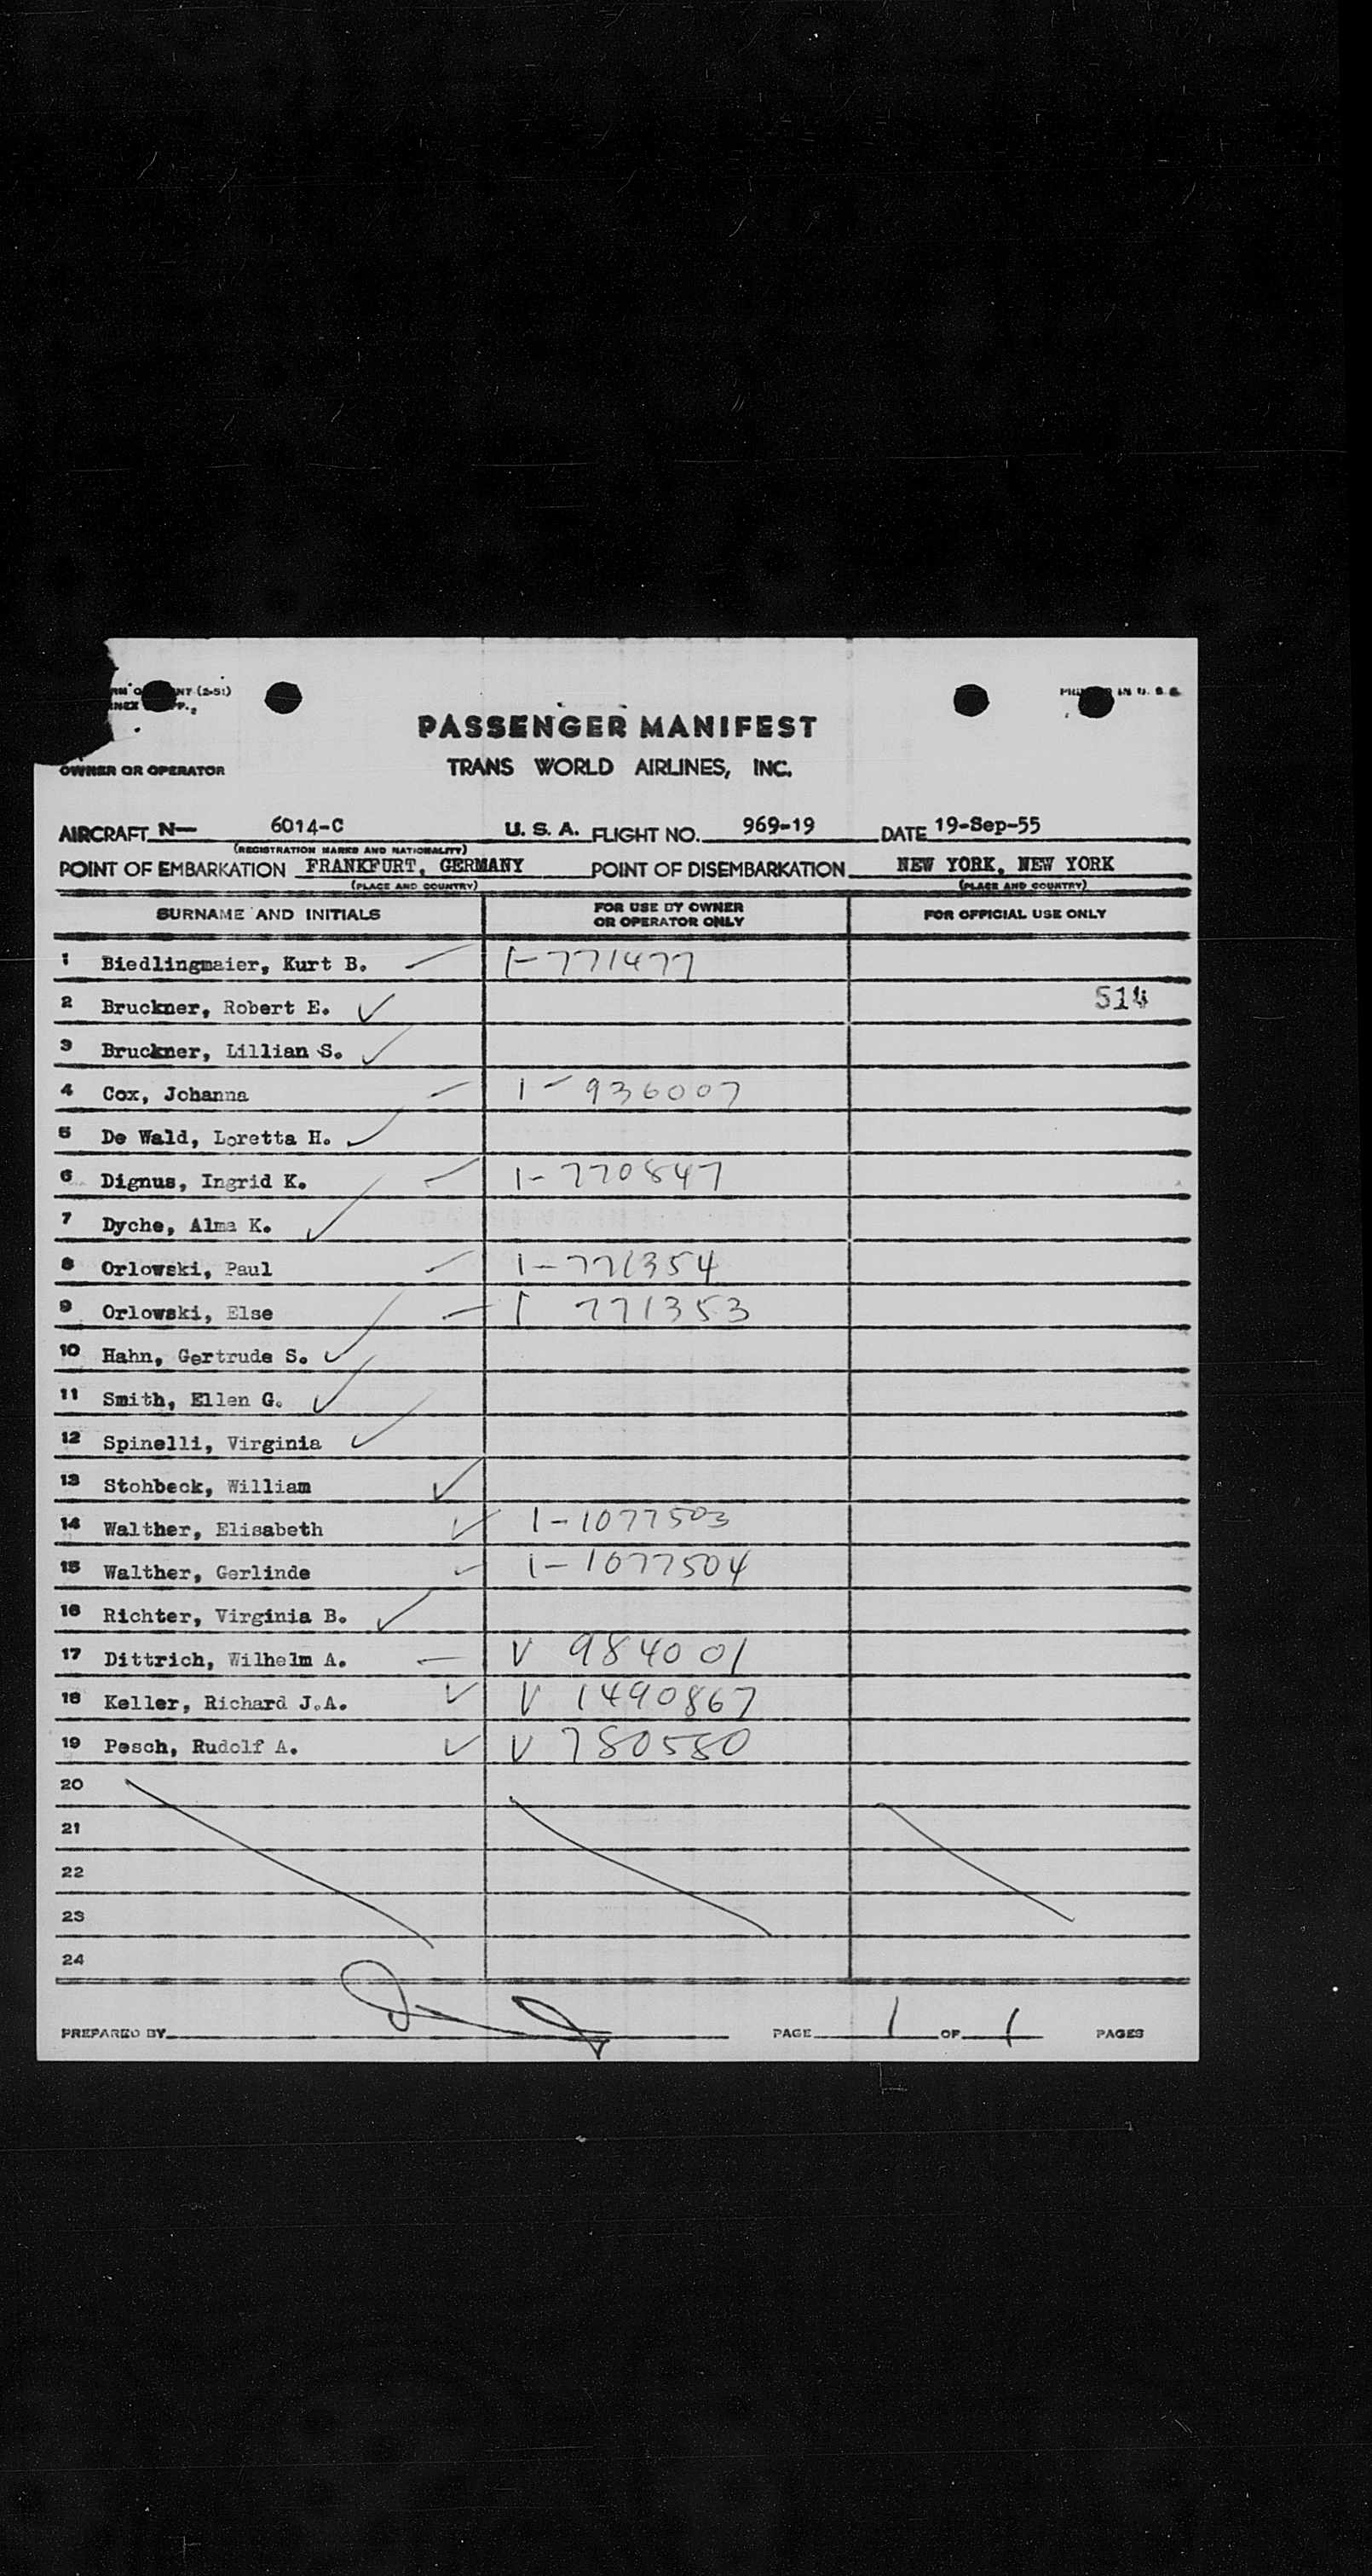 PASSENGER MANIFEST
OWNER OR OPERATOR TRANS WORLD AIRLINES, INC.
AIRCRAFT N— 6014-C U. S. A. FLIGHT NO. 969-19 DATE 19-Sep-55
(REGISTRATION MARKS AND NATIONALITY)
POINT OF EMBARKATION FRANKFURT, GERMANY POINT OF DISEMBARKATION NEW YORK, NEW YORK
(PLACE AND COUNTRY) (PLACE AND COUNTRY)
SURNAME AND INITIALS FOR USE BY OWNER OR OPERATOR ONLY FOR OFFICIAL USE ONLY
1 Biedlingmaier, Kurt B. I-771477
2 Bruckner, Robert E. ✓ 514
3 Bruckner, Lillian S. ✓
4 Cox, Johanna I-936007
5 De Wald, Loretta H. ✓
6 Dignus, Ingrid K. I-770847
7 Dyche, Alma K. ✓
8 Orlowski, Paul I-771354
9 Orlowski, Else I 771353
10 Hahn, Gertrude S. ✓
11 Smith, Ellen G. ✓
12 Spinelli, Virginia ✓
13 Stohbeck, William ✓
14 Walther, Elisabeth ✓ I-1077503
15 Walther, Gerlinde ✓ I-1077504
16 Richter, Virginia B. ✓
17 Dittrich, Wilhelm A. V 984001
18 Keller, Richard J.A. ✓ V 1490867
19 Pesch, Rudolf A. ✓ V 780580
20
21
22
23
24
PREPARED BY PAGE 1 OF 1 PAGES